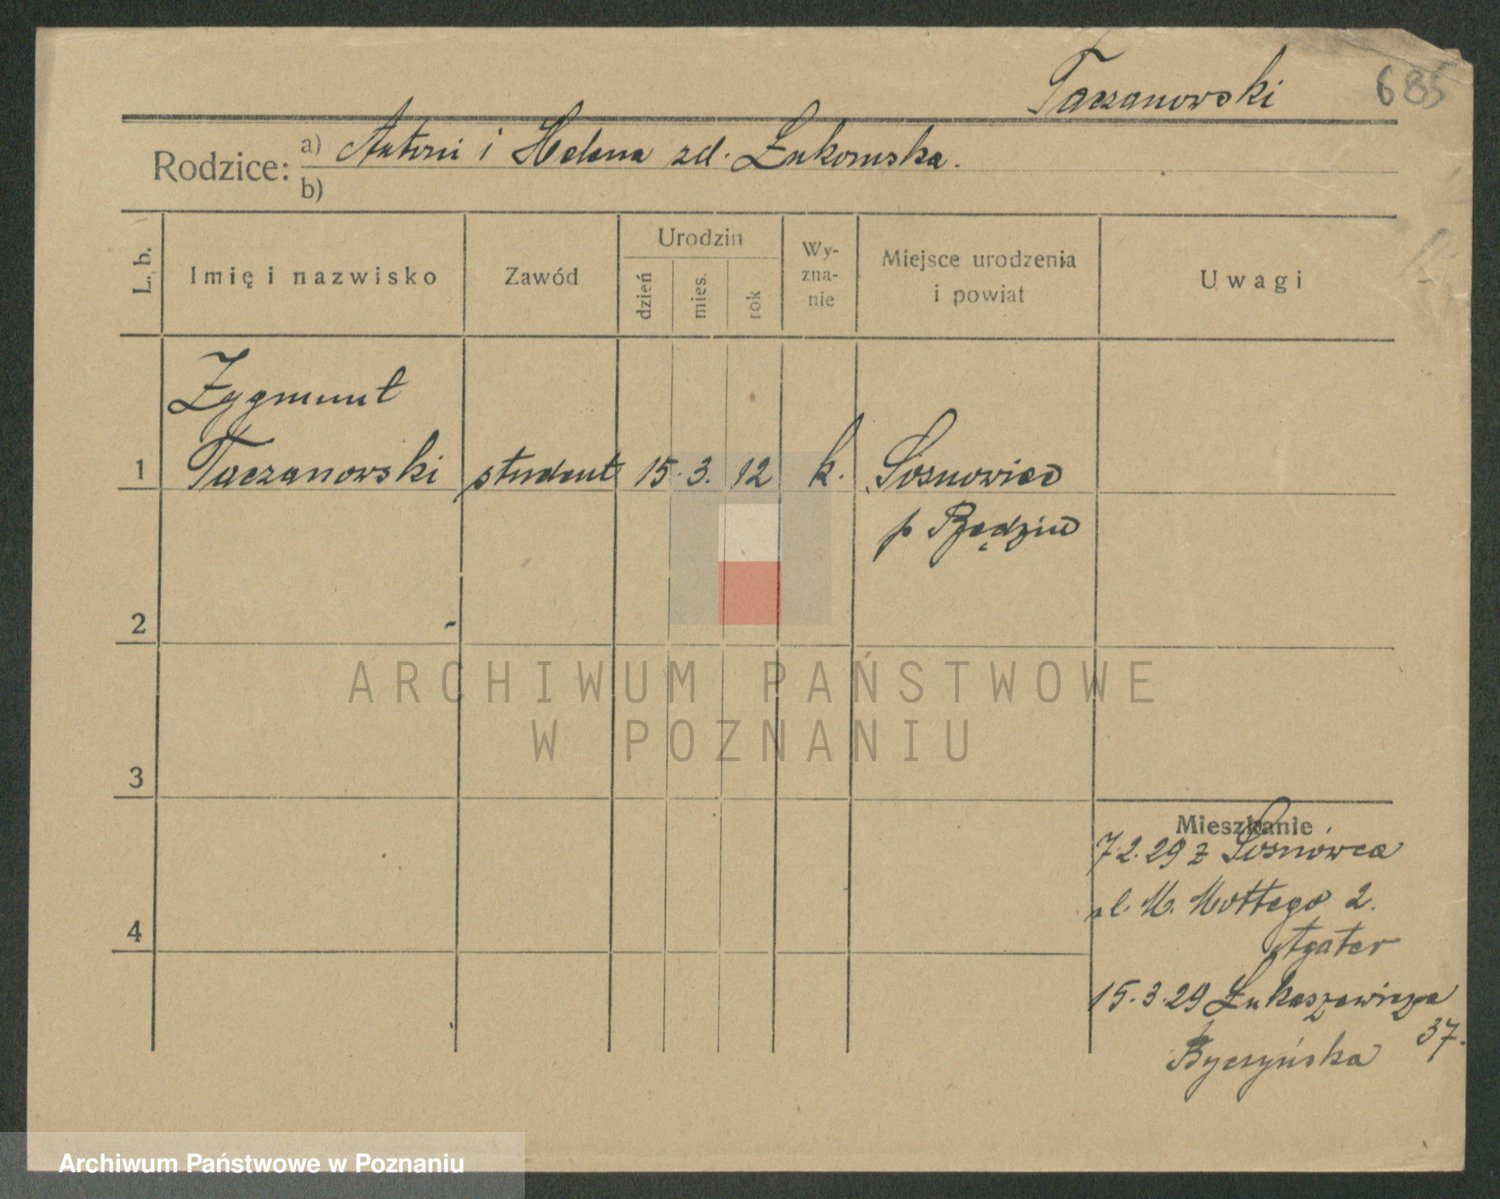 Taczanowski 685
Rodzice: a) Antoni i Helena zd. Łukomska.
b)
L. b.
Imię i nazwisko
Zawód
Urodzin
dzień
mies.
rok
Wy-
zna-
nie
Miejsce urodzenia
i powiat
Uwagi
Zygmunt
1 Taczanowski student 15. 3. 12 k. Sosnowiec
p Będzin
2
3
4
Mieszkanie
7.2.29 z Sosnówca
ul. M. Mottego 2.
15.3.29 Łukaszewicza
37.
Byczyńska
ARCHIWUM PAŃSTWOWE
W POZNANIU
Archiwum Państwowe w Poznaniu